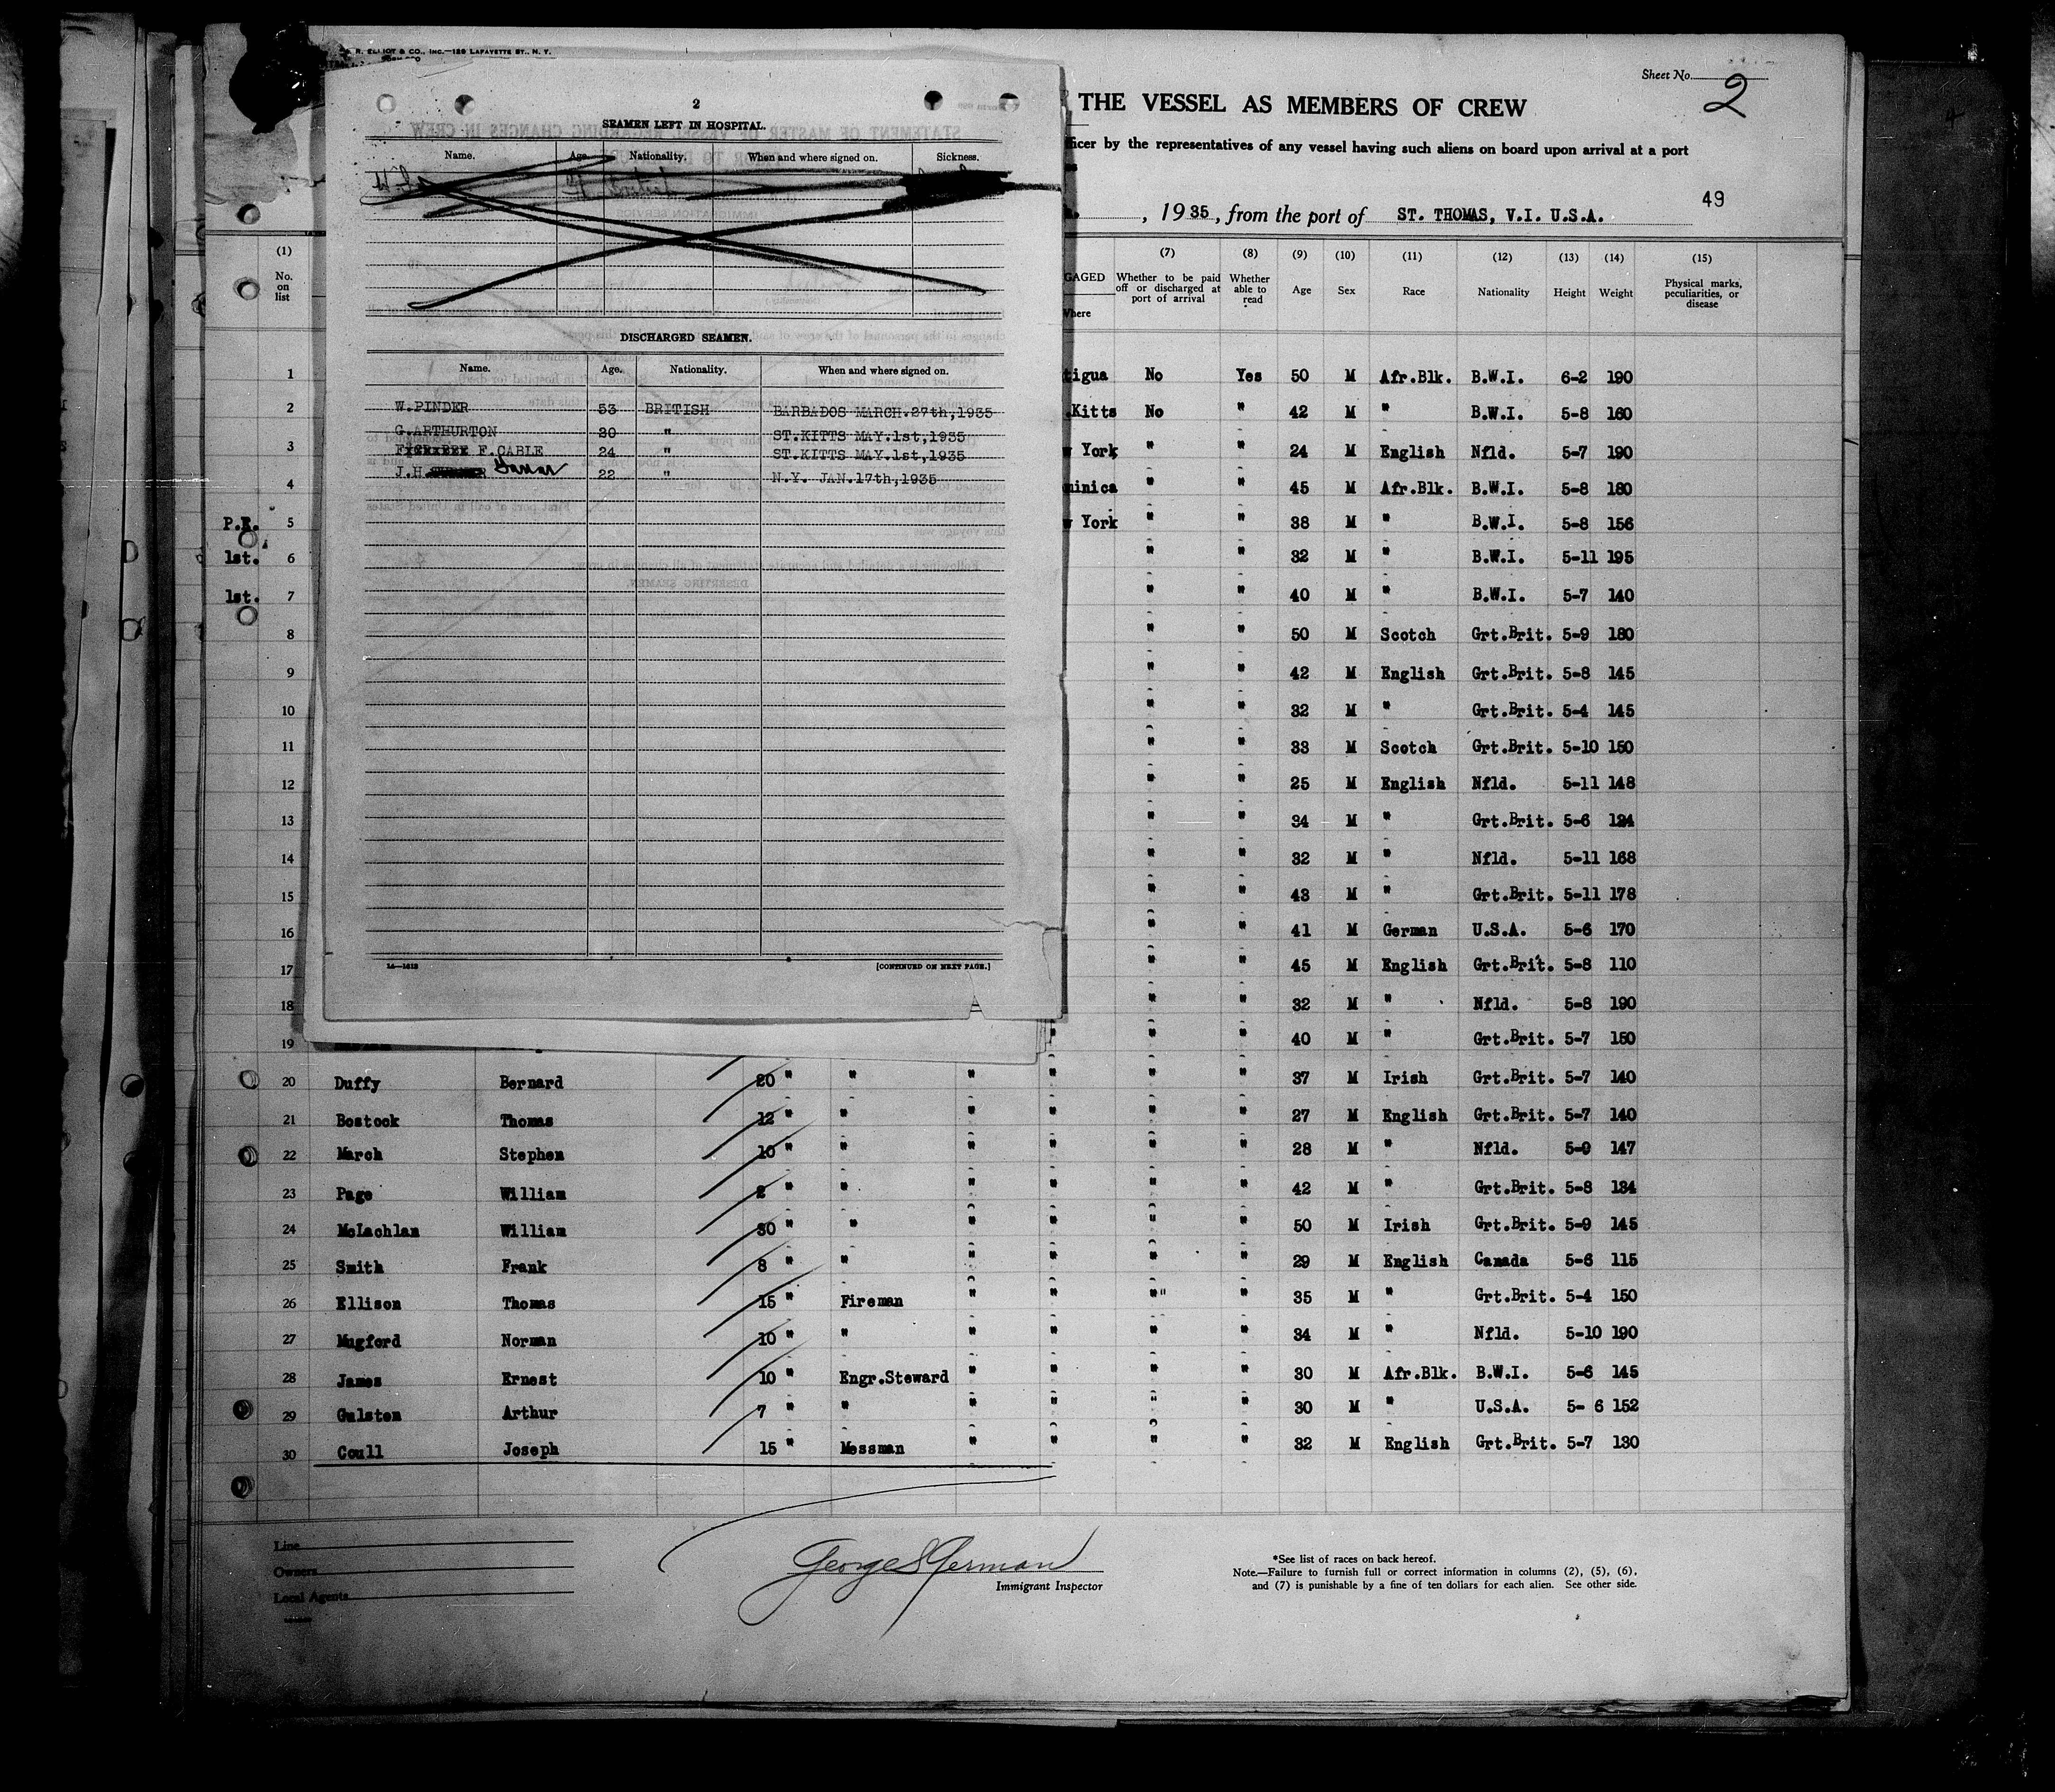 R. ELLIOT & CO., INC.—129 LAFAYETTE ST., N. Y.
Sheet No. 2
THE VESSEL AS MEMBERS OF CREW
ficer by the representatives of any vessel having such aliens on board upon arrival at a port
, 1935, from the port of ST. THOMAS, V.I. U.S.A.
49
2
SEAMEN LEFT IN HOSPITAL.
Name. Age. Nationality. When and where signed on. Sickness.
DISCHARGED SEAMEN.
Name. Age. Nationality. When and where signed on.
W.PINDER 53 BRITISH BARBADOS MARCH.27th,1935
G.ARTHURTON 20 " ST.KITTS MAY.1st,1935
F.CABLE 24 " ST.KITTS MAY.1st,1935
J.H. 22 " N.Y. JAN.17th,1935
16—1613 [CONTINUED ON NEXT PAGE.]
(1) No. on list
GAGED
Where
(7) Whether to be paid off or discharged at port of arrival
(8) Whether able to read
(9) Age
(10) Sex
(11) Race
(12) Nationality
(13) Height
(14) Weight
(15) Physical marks, peculiarities, or disease
1 tigua No Yes 50 M Afr.Blk. B.W.I. 6-2 190
2 .Kitts No " 42 M " B.W.I. 5-8 160
3 w York " " 24 M English Nfld. 5-7 190
4 minica " " 45 M Afr.Blk. B.W.I. 5-8 180
P.R. 5 w York " " 38 M " B.W.I. 5-8 156
1st. 6 " " 32 M " B.W.I. 5-11 195
1st. 7 " " 40 M " B.W.I. 5-7 140
8 " " 50 M Scotch Grt.Brit. 5-9 180
9 " " 42 M English Grt.Brit. 5-8 145
10 " " 32 M " Grt.Brit. 5-4 145
11 " " 33 M Scotch Grt.Brit. 5-10 150
12 " " 25 M English Nfld. 5-11 148
13 " " 34 M " Grt.Brit. 5-6 124
14 " " 32 M " Nfld. 5-11 168
15 " " 43 M " Grt.Brit. 5-11 178
16 " " 41 M German U.S.A. 5-6 170
17 " " 45 M English Grt.Brit. 5-8 110
18 " " 32 M " Nfld. 5-8 190
19 " " 40 M " Grt.Brit. 5-7 150
20 Duffy Bernard 20 " " " " " " 37 M Irish Grt.Brit. 5-7 140
21 Bostock Thomas 12 " " " " " " 27 M English Grt.Brit. 5-7 140
22 March Stephen 10 " " " " " " 28 M " Nfld. 5-9 147
23 Page William 2 " " " " " " 42 M " Grt.Brit. 5-8 134
24 McLachlan William 30 " " " " " " 50 M Irish Grt.Brit. 5-9 145
25 Smith Frank 8 " " " " " " 29 M English Canada 5-6 115
26 Ellison Thomas 15 " Fireman " " " " 35 M " Grt.Brit. 5-4 150
27 Mugford Norman 10 " " " " " " 34 M " Nfld. 5-10 190
28 James Ernest 10 " Engr.Steward " " " " 30 M Afr.Blk. B.W.I. 5-6 145
29 Gulston Arthur 7 " " " " " " 30 M " U.S.A. 5- 6 152
30 Coull Joseph 15 " Messman " " " " 32 M English Grt.Brit. 5-7 130
Line
Owners
Local Agents
Immigrant Inspector
*See list of races on back hereof.
Note.—Failure to furnish full or correct information in columns (2), (5), (6),
and (7) is punishable by a fine of ten dollars for each alien. See other side.